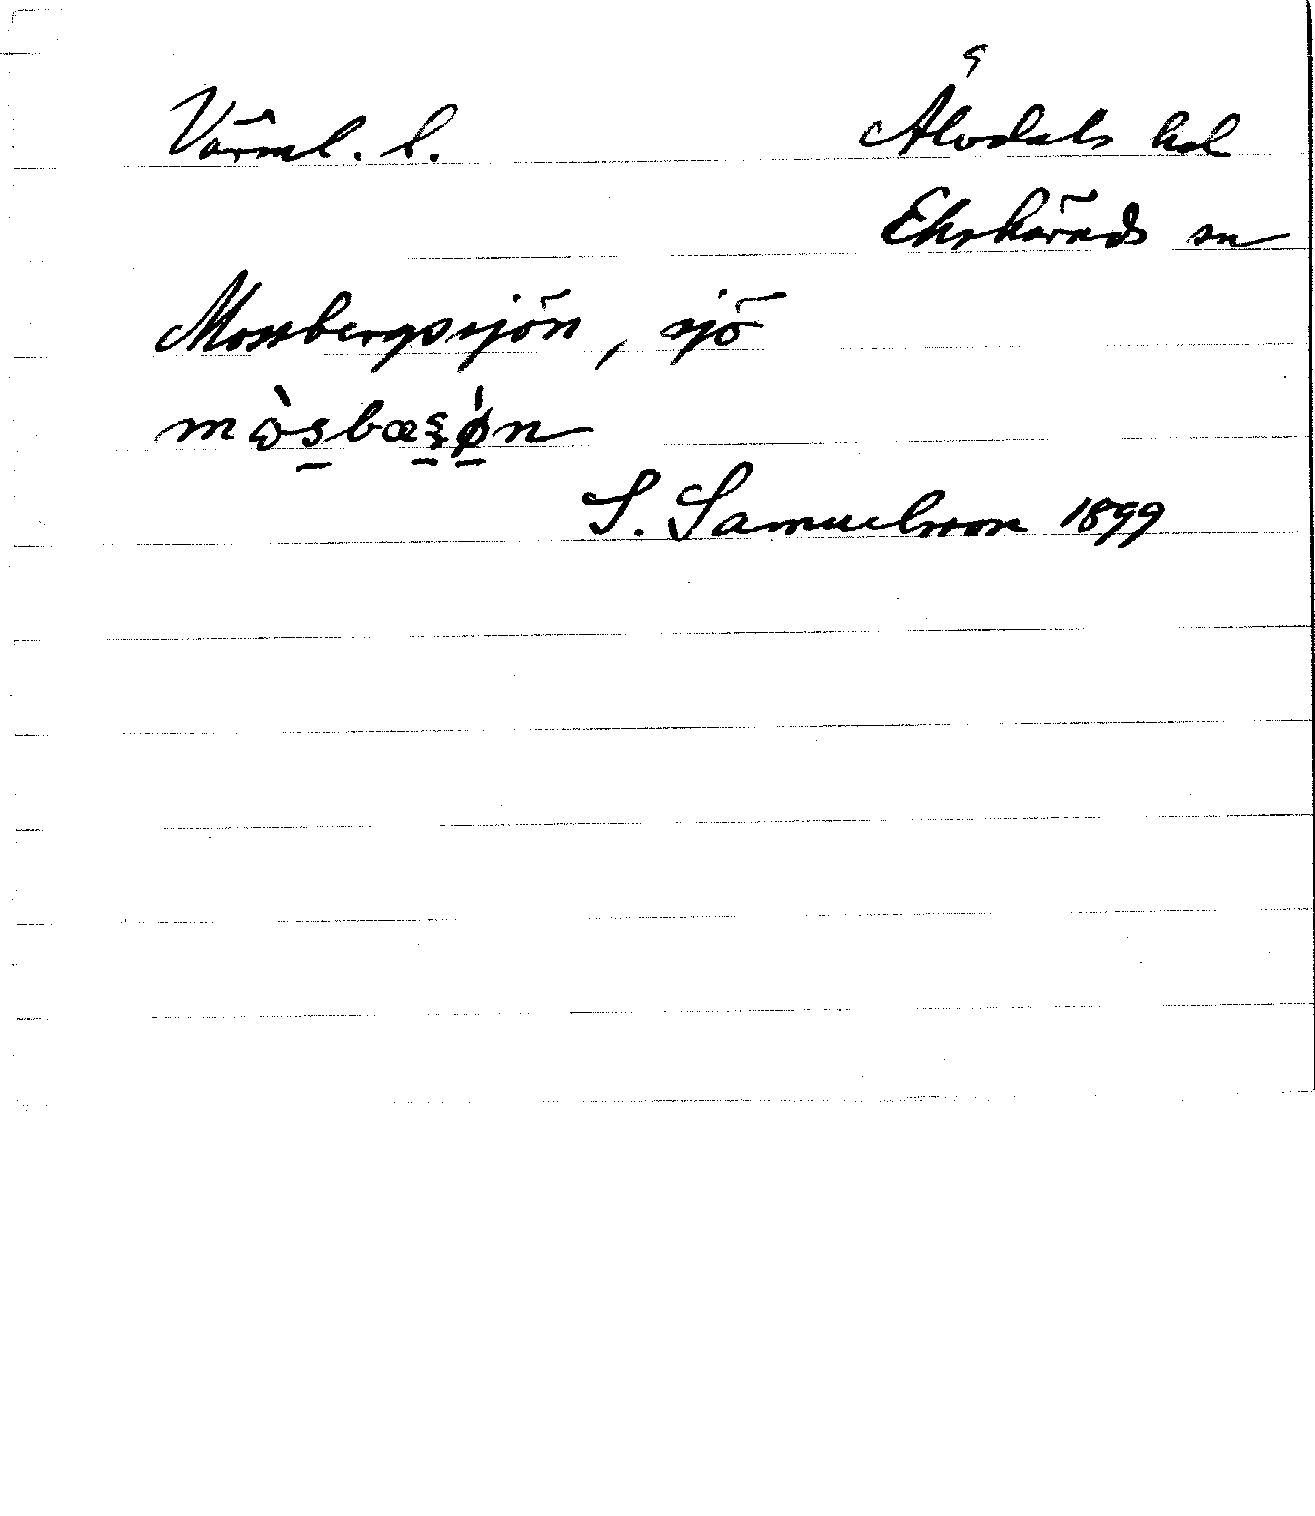 Värml. l. Älvdals hd
Ekshärads sn
Mossbergssjön, sjö
mɷ̀sbæʂø̍n
S. Samuelsson 1899